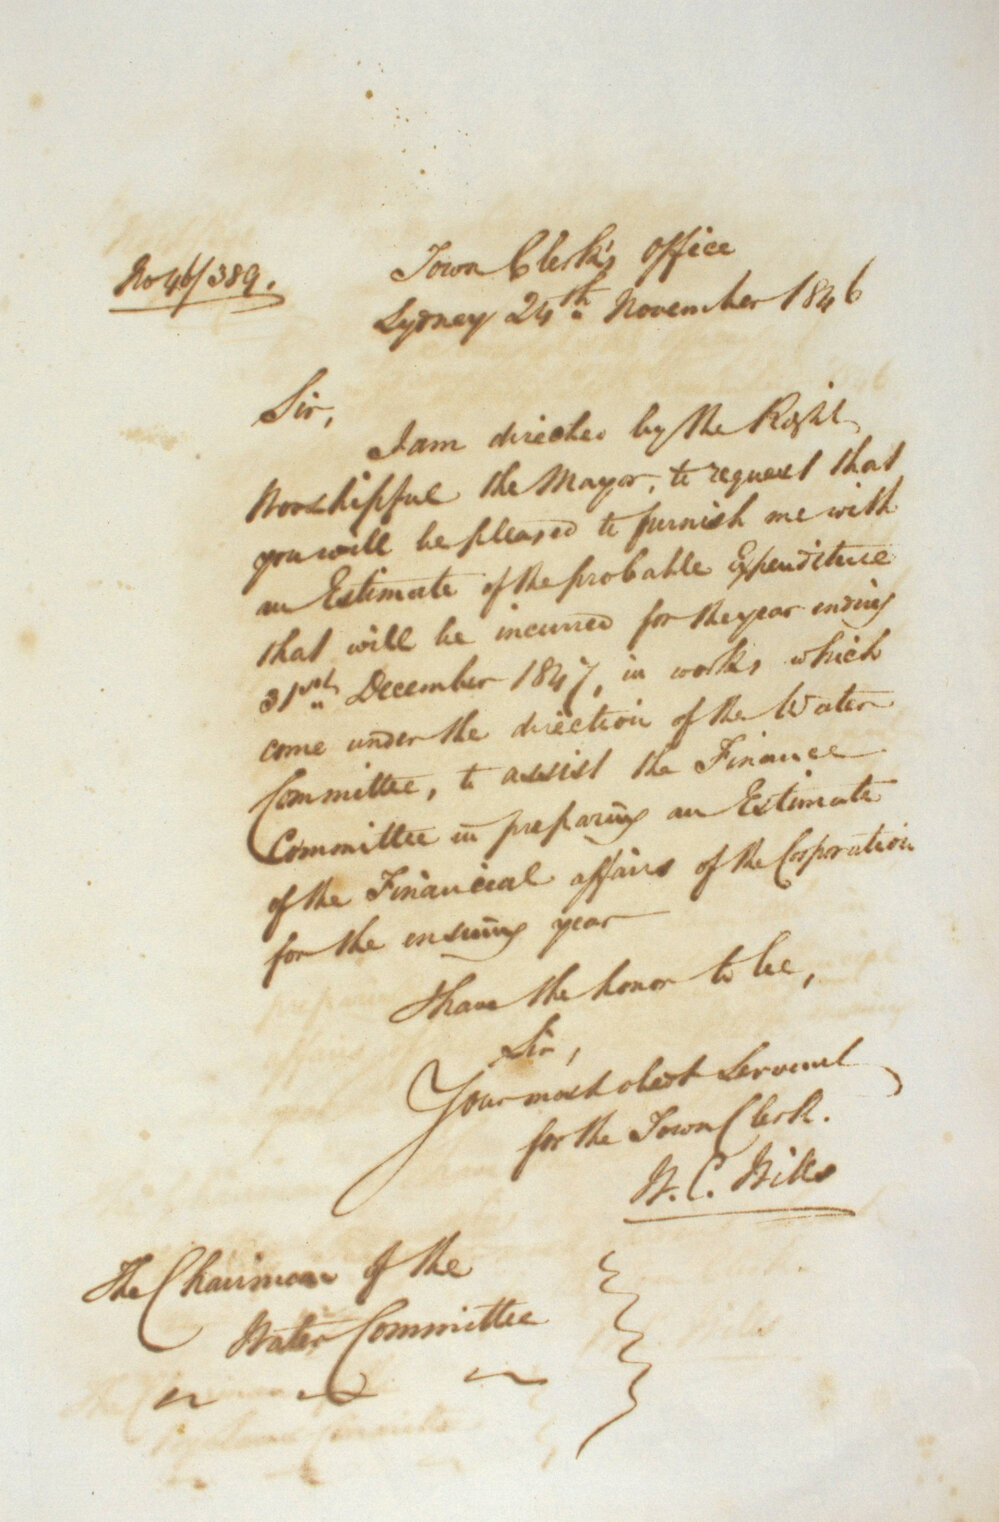 No 46/389.
Town Clerk's Office
Sydney 24th November 1846
Sir,
I am directed by the Right
Worshipful the Mayor, to request that
you will be pleased to furnish me with
an Estimate of the probable Expenditure
that will be incurred for the year ending
31st December 1847, in works which
come under the direction of the Water
Committee, to assist the Finance
Committee in preparing an Estimate
of the Financial affairs of the Corporation
for the ensuing year
I have the honor to be,
Sir,
Your most obedt Servant
for the Town Clerk.
W. C. Wills
The Chairman of the
Water Committee